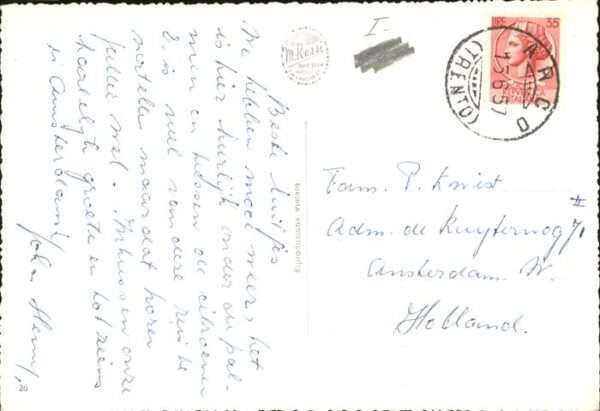 Beste luitjes
We hebben mooi weer, het
is hier heerlijk onder de pal-
men en tussen de citroenen
E. is wel van onze reis te
vertellen maar dat horen
jullie wel. Intussen onze
hartelijke groeten en tot ziens
in Amsterdam,
I.
M. Kern
LIRE 35
ARCO
(TRENTO)
13.6.57
Fam. P. Kwist
Adm. de Ruyterweg 71 II
Amsterdam W.
Holland.
20